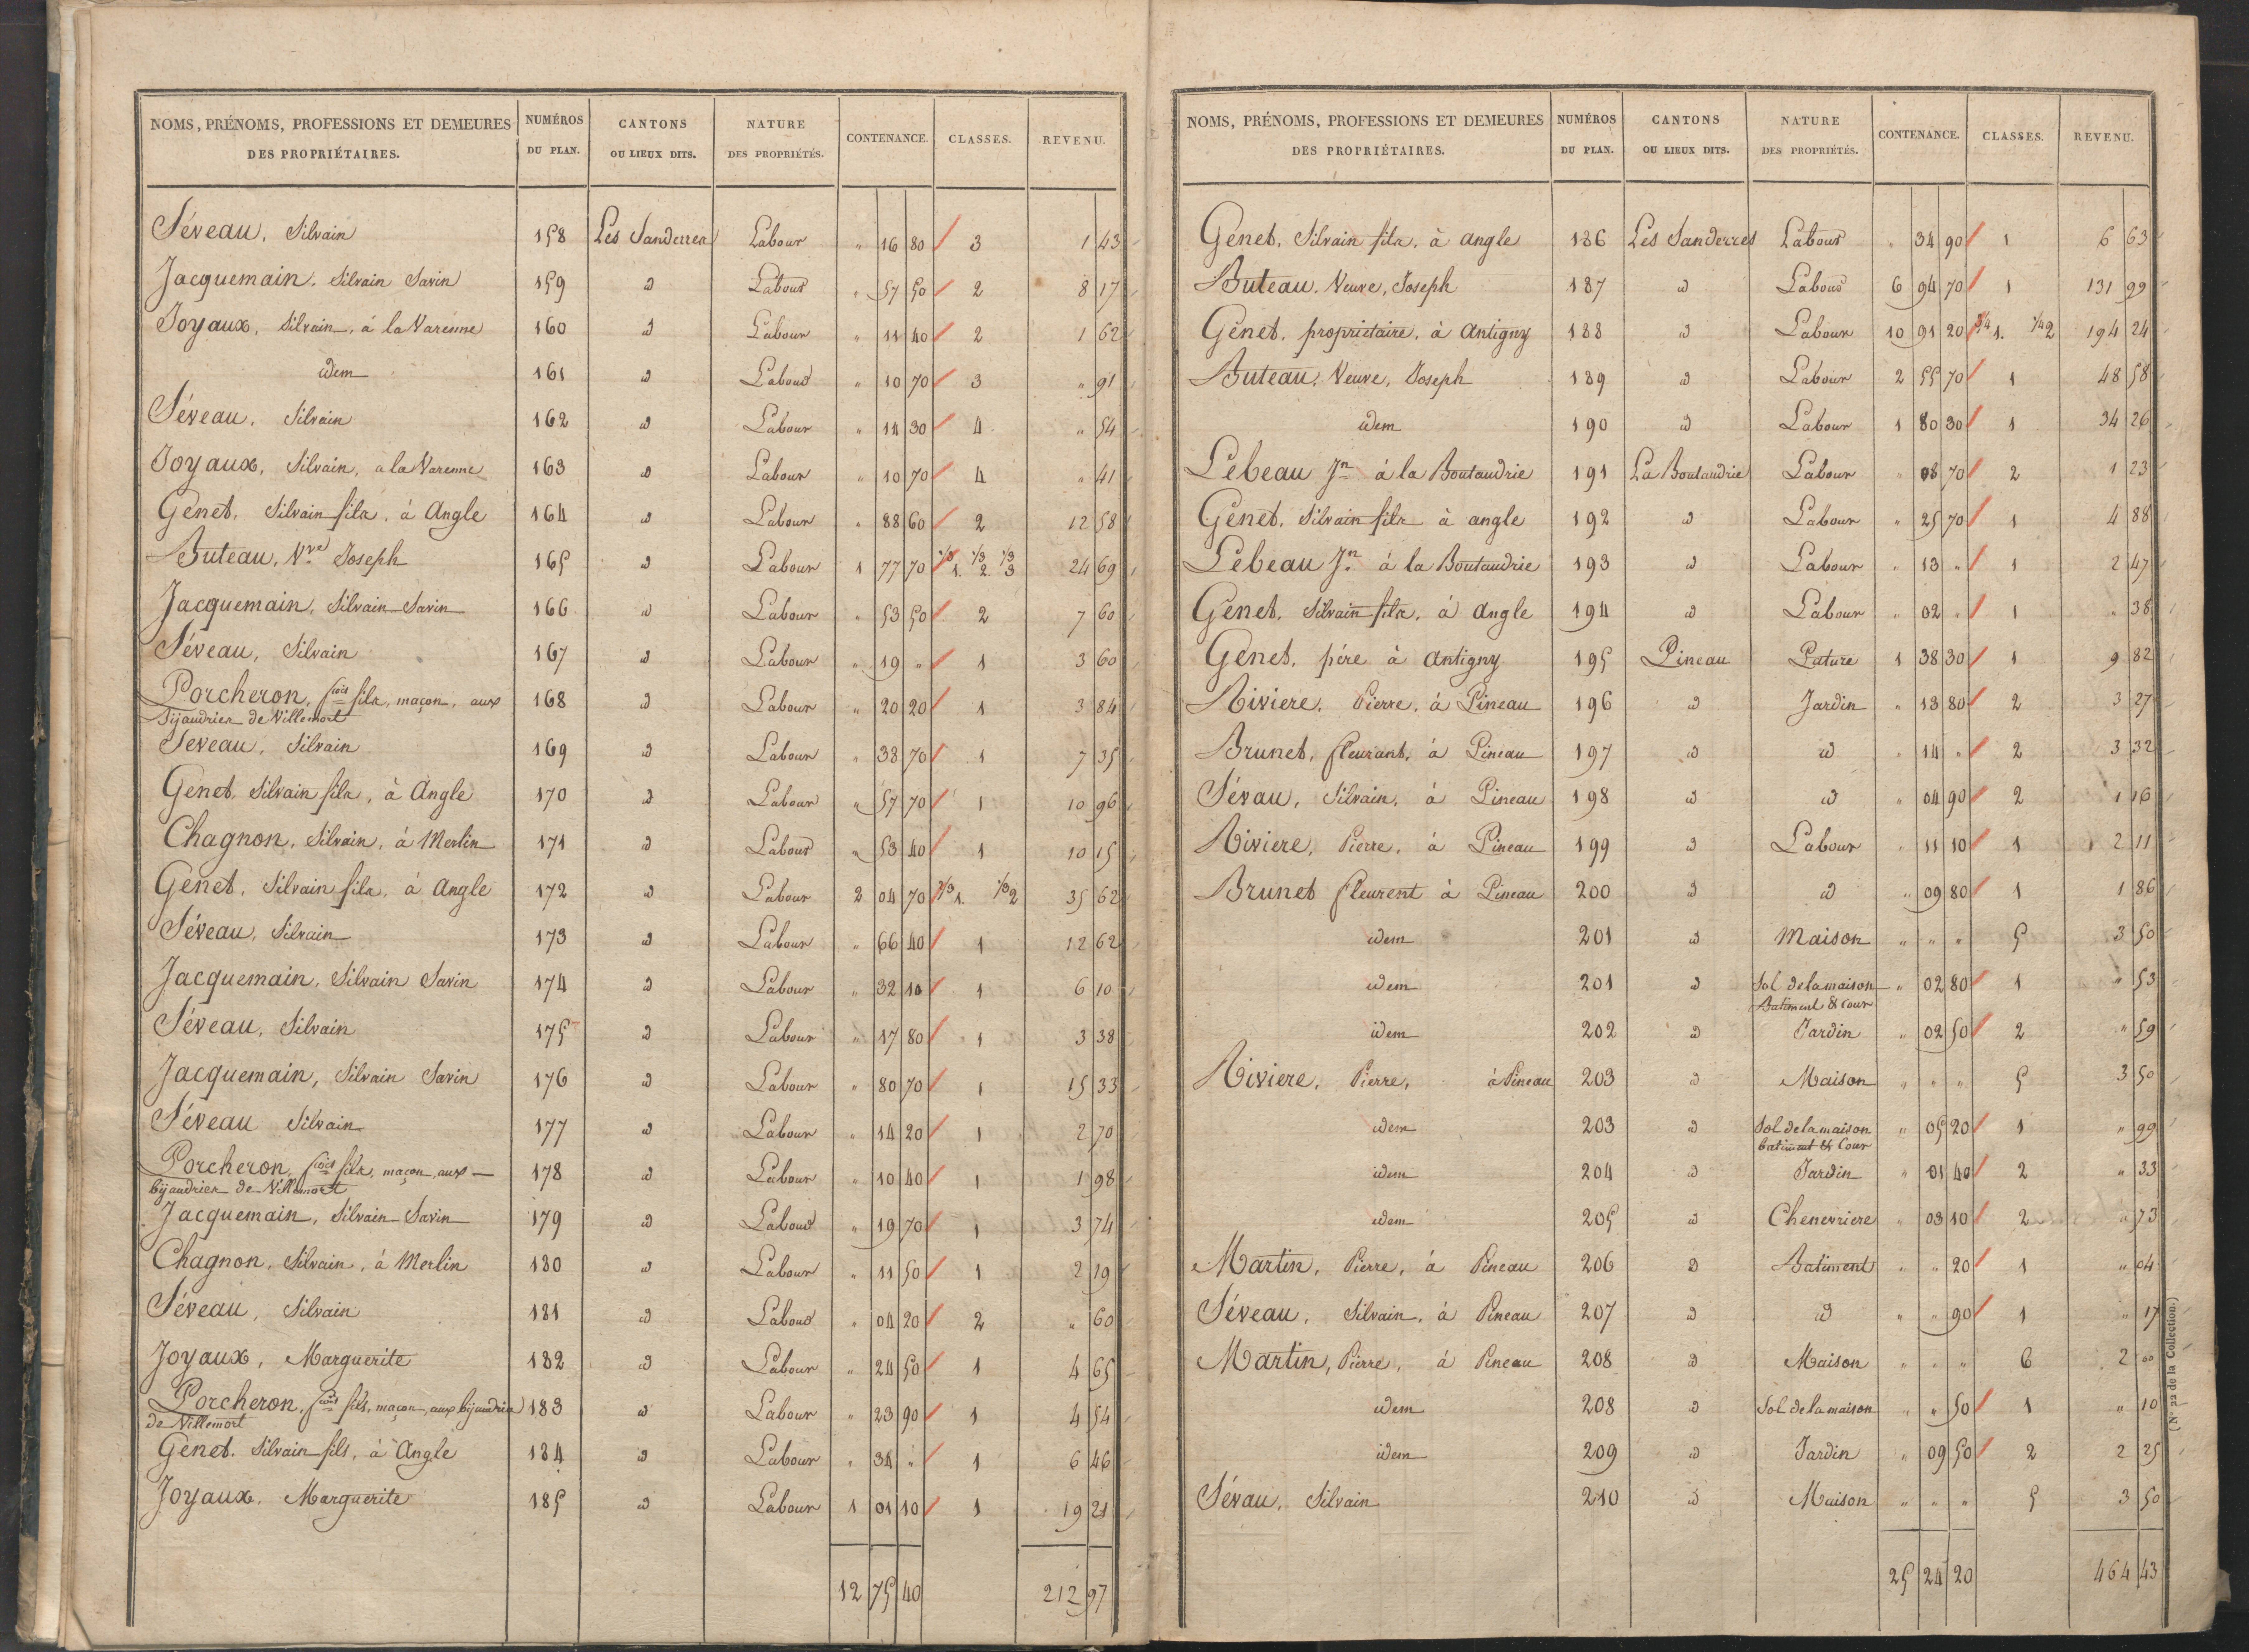 NOMS, PRÉNOMS, PROFESSIONS ET DEMEURES DES PROPRIÉTAIRES. NUMÉROS DU PLAN. CANTONS OU LIEUX DITS. NATURE DES PROPRIÉTÉS. CONTENANCE. CLASSES. REVENU.
Séveau, Silvain 158 Les Sanderres Labour " 16 80 3 1 43
Jacquemain, Silvain Savin 159 id Labour " 57 50 2 8 17
Joyaux, Silvain, à la Varenne 160 id Labour " 11 40 2 1 62
idem 161 id Labour " 10 70 3 " 91
Séveau, Silvain 162 id Labour " 14 30 4 " 54
Joyaux, Silvain, a la Varenne 163 id Labour " 10 70 4 " 41
Genet, Silvain fils, à Angle 164 id Labour " 88 60 2 12 58
Buteau, Vve Joseph 165 id Labour 1 77 70 1/3 1. 1/3 2. 1/3 3 24 69
Jacquemain, Silvain Savin 166 id Labour " 53 50 2 7 60
Séveau, Silvain 167 id Labour " 19 " 1 3 60
Porcheron, fçois fils, maçon, aux 168 id Labour " 20 20 1 3 84
bijaudries de Villemort
Séveau, Silvain 169 id Labour " 38 70 1 7 35
Genet, Silvain fils, à Angle 170 id Labour " 57 70 1 10 96
Chagnon, Silvain, à Merlin 171 id Labour " 53 40 1 10 15
Genet, Silvain fils, à Angle 172 id Labour 2 04 70 2/3 1. 1/3 2 35 62
Séveau, Silvain 173 id Labour " 66 40 1 12 62
Jacquemain, Silvain Savin 174 id Labour " 32 10 1 6 10
Séveau, Silvain 175 id Labour " 17 80 1 3 38
Jacquemain, Silvain Savin 176 id Labour " 80 70 1 15 33
Séveau Silvain 177 id Labour " 14 20 1 2 70
Porcheron, fçois fils, maçon, aux 178 id Labour " 10 40 1 1 98
bijaudries de Villemort
Jacquemain, Silvain Savin 179 id Labour " 19 70 1 3 74
Chagnon, Silvain, à Merlin 180 id Labour " 11 50 1 2 19
Séveau, Silvain 181 id Labour " 04 20 2 " 60
Joyaux, Marguerite 182 id Labour " 24 50 1 4 65
Porcheron, fçois fils, maçon, aux bijaudries 183 id Labour " 23 90 1 4 54
de Villemort
Genet, Silvain fils, à Angle 184 id Labour " 34 " 1 6 46
Joyaux, Marguerite 185 id Labour 1 01 10 1 19 21
12 75 40 212 97
NOMS, PRÉNOMS, PROFESSIONS ET DEMEURES DES PROPRIÉTAIRES. NUMÉROS DU PLAN. CANTONS OU LIEUX DITS. NATURE DES PROPRIÉTÉS. CONTENANCE. CLASSES. REVENU.
Genet, Silvain fils, à angle 186 Les Sanderres Labour " 34 90 1 6 63
Buteau, Veuve, Joseph 187 id Labour 6 94 70 1 131 99
Genet, propriétaire, à Antigny 188 id Labour 10 91 20 3/4 1. 1/4 2 194 24
Buteau, Veuve, Joseph 189 id Labour 2 55 70 1 48 58
idem 190 id Labour 1 80 30 1 34 26
Lebeau Jn à la Boutaudrie 191 La Boutaudrie Labour " 08 70 2 1 23
Genet, Silvain fils à angle 192 id Labour " 25 70 1 4 88
Lebeau Jn à la Boutaudrie 193 id Labour " 13 " 1 2 47
Genet, Silvain fils, à Angle 194 id Labour " 02 " 1 " 38
Genet, père à Antigny 195 Pineau Pature 1 38 30 1 9 82
Riviere, Pierre, à Pineau 196 id Jardin " 13 80 2 3 27
Brunet, fleurant, à Pineau 197 id id " 14 " 2 3 32
Sévau, Silvain, à Pineau 198 id id " 04 90 2 1 16
Riviere, Pierre, à Pineau 199 id Labour " 11 10 1 2 11
Brunet fleurent à Pineau 200 id id " 09 80 1 1 86
idem 201 id Maison " " " 5 3 50
idem 201 id Sol de la maison " 02 80 1 " 53
Batiment & Cour
idem 202 id Jardin " 02 50 2 " 59
Riviere, Pierre, à Pineau 203 id Maison " " " 5 3 50
idem 203 id Sol de la maison " 05 20 1 " 99
batiment & Cour
idem 204 id Jardin " 01 40 2 " 33
idem 205 id Chenevriere " 03 10 2 " 73
Martin, Pierre, à Pineau 206 id Batiment " " 20 1 " 04
Séveau, Silvain, à Pineau 207 id id " " 90 1 " 17
Martin, Pierre, à Pineau 208 id Maison " " " 6 2 00
idem 208 id Sol de la maison " " 50 1 " 10
idem 209 id Jardin " 09 50 2 2 25
Sévau, Silvain 210 id Maison " " " 5 3 50
25 24 20 464 43
(N° 22 de la Collection.)